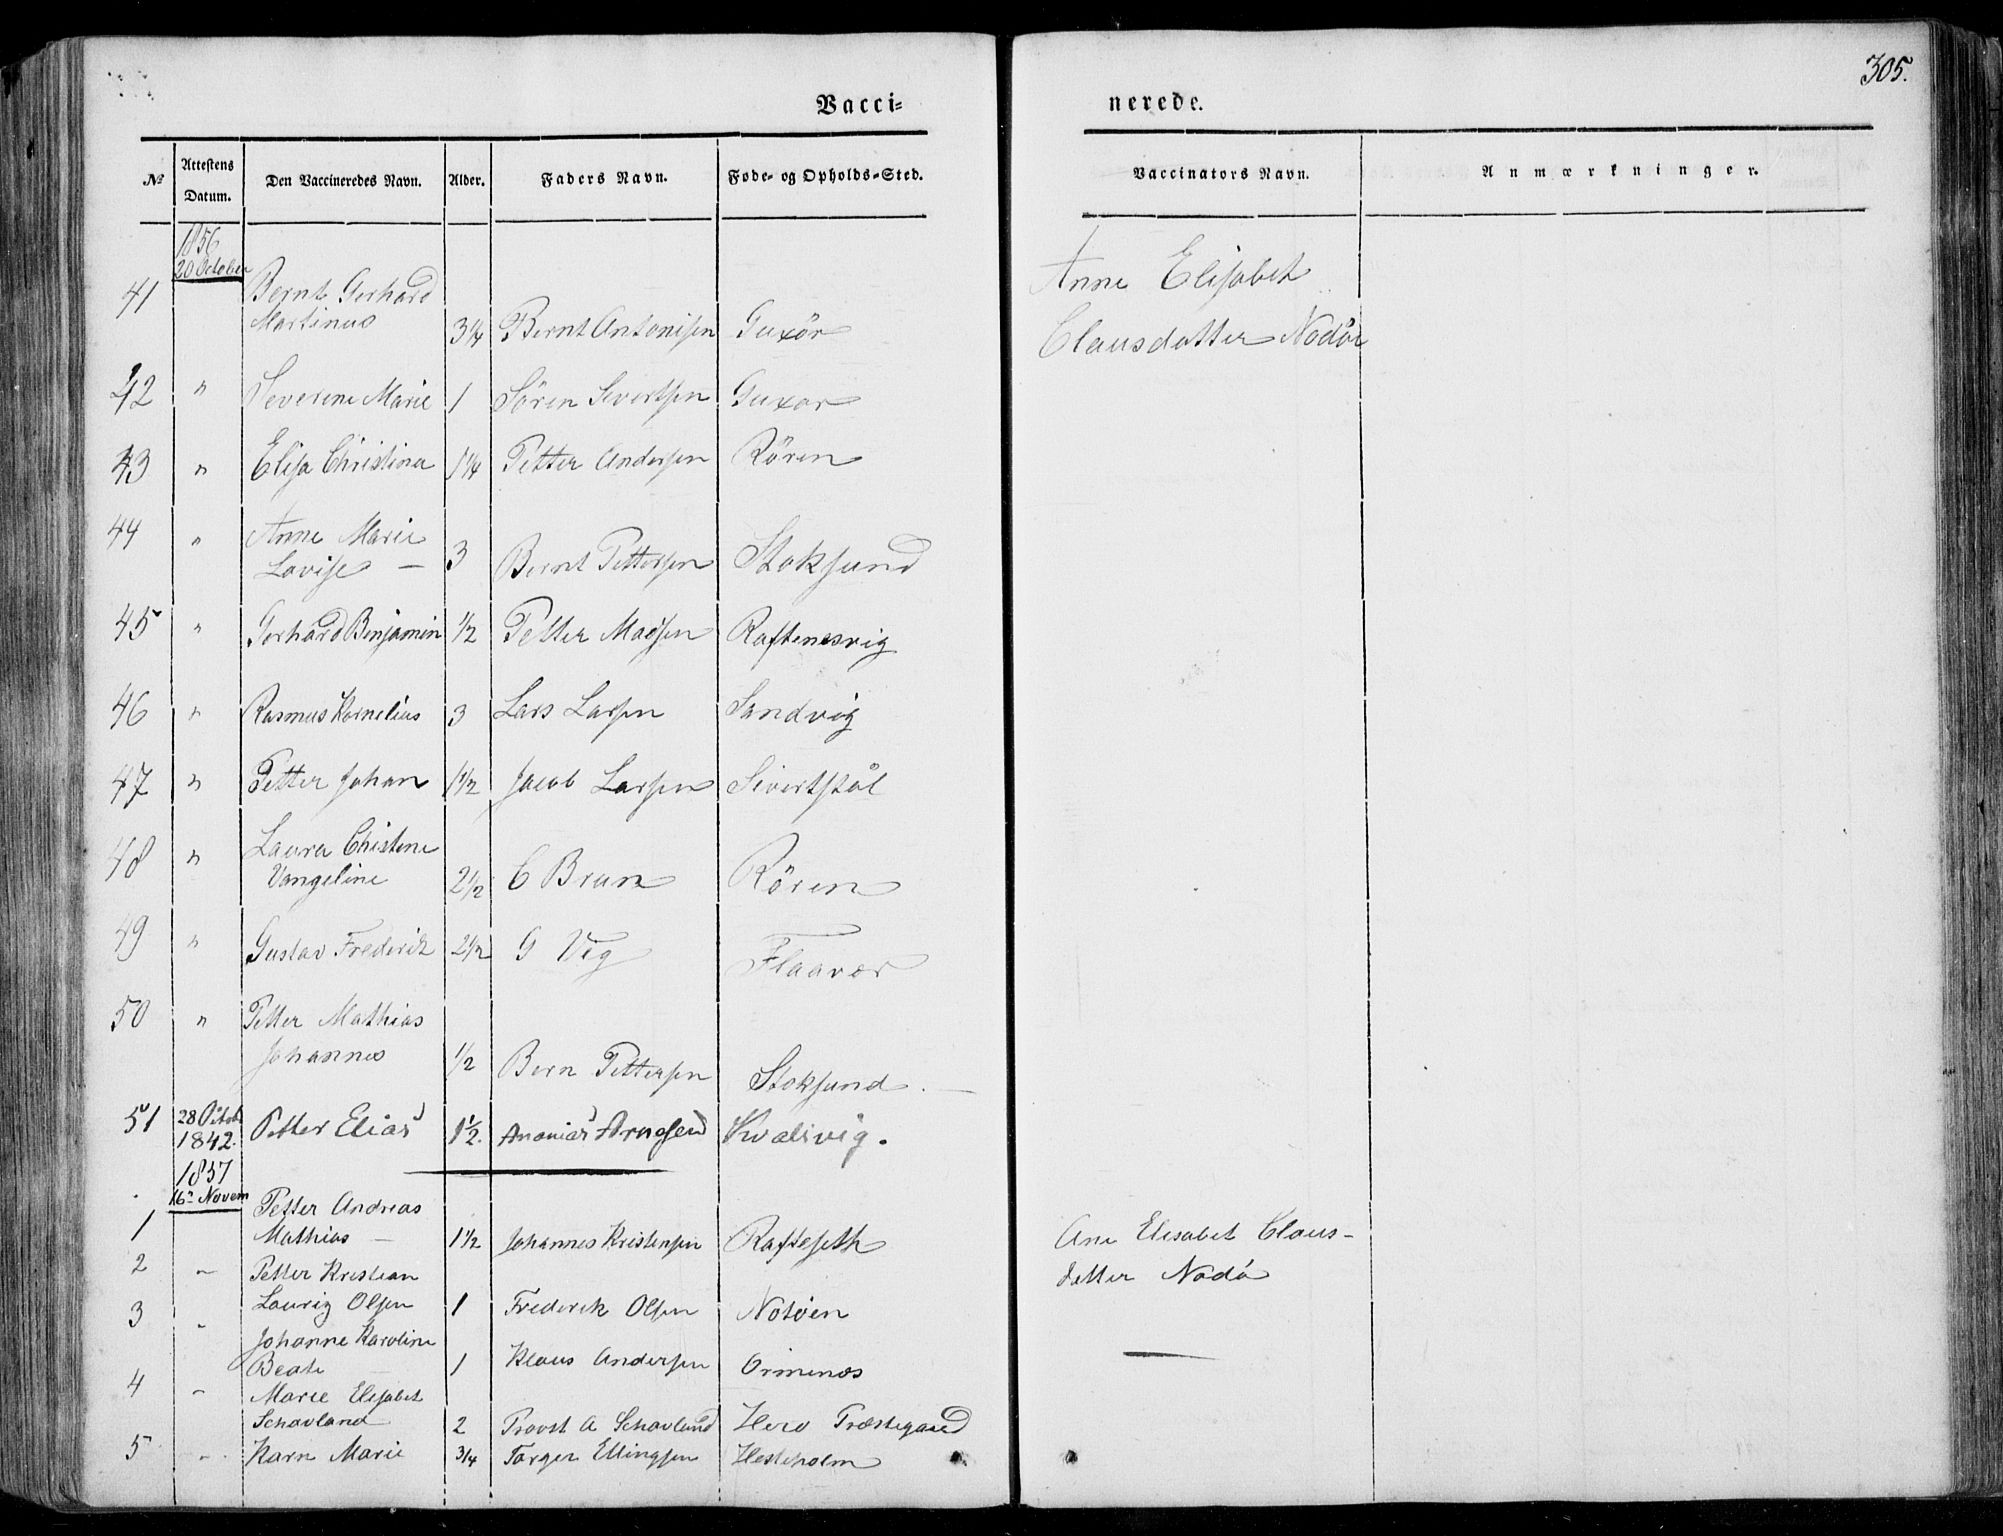 305.
Vacci= nerede.
№ Attestens Datum. Den Vaccineredes Navn. Alder. Faders Navn. Føde- og Opholds-Sted. Vaccinators Navn. Anmærkninger.
1856
20 October
41 Bernt Gerhard
Martinus 3 1/4 Bernt Antonisen Guxör
Anne Elisabet
Clausdatter Nodöe
42 " Severine Marie 1 Sören Sivertsen Guxor
43 " Elisa Christina 1 1/4 Petter Andersen Rören
44 " Anne Marie
Lovise — 3 Bernt Pettersen Stoksund
45 " Gerhard Benjamin 1/2 Petter Madsen Raftenesvig
46 " Rasmus Kornelius 3 Lars Larsen Sandvig
47 " Petter Johan 1 1/2 Jacob Larsen Sivertstöl
48 " Laura Chistine
Vangeline 2 1/2 C Brun Rören
49 " Gustav Frederik 2 1/2 G Veg Flaavær
50 " Petter Mathias
Johannes 1/2 Bern Pettersen Stoksund
51 28 Octob 1842. Petter Elias 1 1/2. Ananias Arnesen Kvalsvig.
1857
16n Novem
1 Petter Andreas
Mathias — 1 1/2 Johannes Kristensen Rafteseth
Ane Elisabet Claus-
datter Nodö
2 " Petter Kristian
Laurig Olsen 1 Frederik Olsen Notöen
3 " Johanne Karoline
Beate 1 Klaus Andersen Ormenæs
4 " Marie Elisabet
Schavland 2 Provst A Schavland Herö Præstegaard
5 " Karn Marie 3/4 Torger Ellingsen Hesteholm